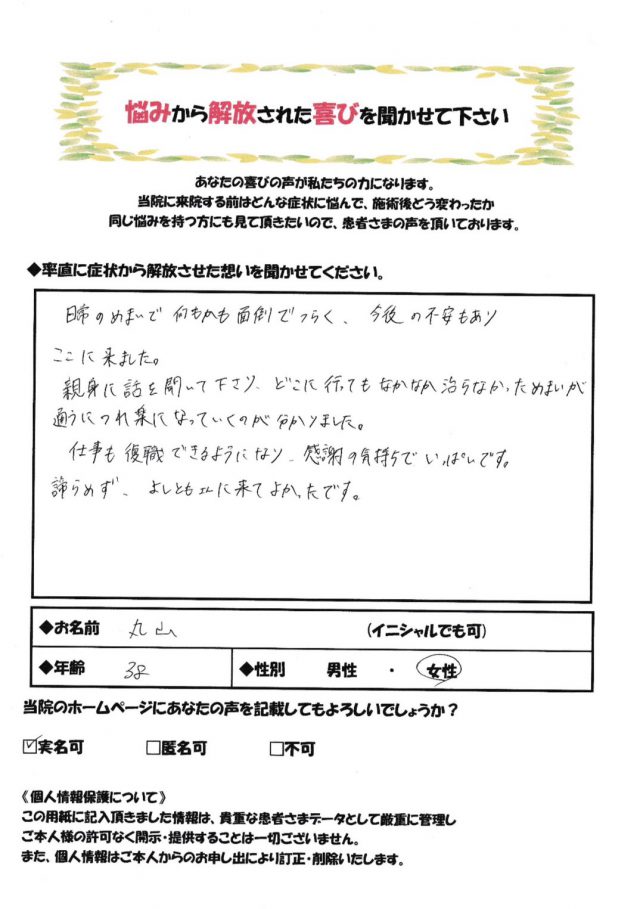 悩みから解放された喜びを聞かせて下さい
あなたの喜びの声が私たちの力になります。
当院に来院する前はどんな症状に悩んで、施術後どう変わったか
同じ悩みを持つ方にも見て頂きたいので、患者さまの声を頂いております。
◆率直に症状から解放させた想いを聞かせてください。
日常のめまいで 何もかも面倒でつらく、今後の不安もあり
ここに来ました。
親身に話を聞いて下さり、どこに行ってもなかなか治らなかっためまいが
通うにつれ楽になっていくのが分かりました。
仕事も復職できるようになり、感謝の気持ちでいっぱいです。
諦らめず、よしともに来てよかったです。
◆お名前 丸山 (イニシャルでも可)
◆年齢 38 ◆性別 男性 ・ 女性
当院のホームページにあなたの声を記載してもよろしいでしょうか？
☑実名可 □匿名可 □不可
《個人情報保護について》
この用紙に記入頂きました情報は、貴重な患者さまデータとして厳重に管理し
ご本人様の許可なく開示・提供することは一切ございません。
また、個人情報はご本人からのお申し出により訂正・削除いたします。